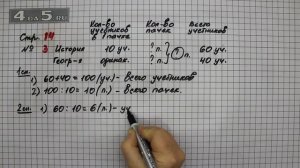 4DS.RU
Стр. 14
Кол-во учебников в 1 пачке
Кол-во пачек
Всего учебников
№ 3 История 10 уч. ? п. ? п. 60 уч.
Геогр-я одинак. ? п. 40 уч.
1 сп.
1) 60+40=100 (уч.) - Всего учебников
2) 100:10=10 (п.) - Всего пачек.
2 сп. 1) 60:10=6 (п.) - уч